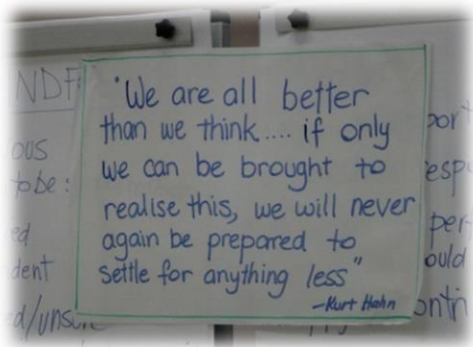 "We are all better
than we think.... if only
we can be brought to
realise this, we will never
again be prepared to
settle for anything less"
-Kurt Hahn
to be: